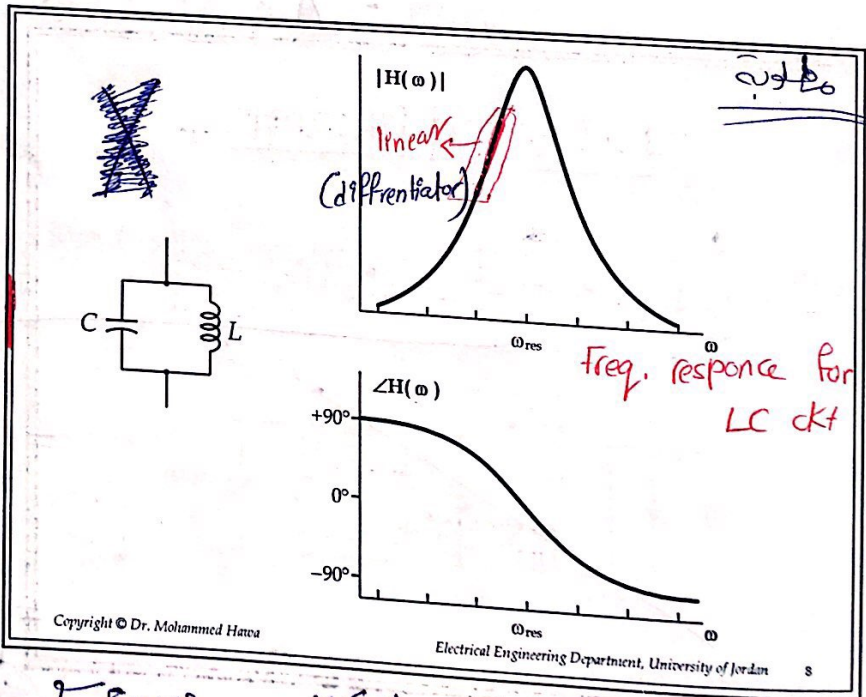 |H(ω)|
مطلوبة
linear
(diffrentiator)
C
L
ω_res
ω
Freq. responce for
LC ckt
∠H(ω)
+90°
0°
−90°
ω_res
ω
Copyright © Dr. Mohammed Hawa
Electrical Engineering Department, University of Jordan
8